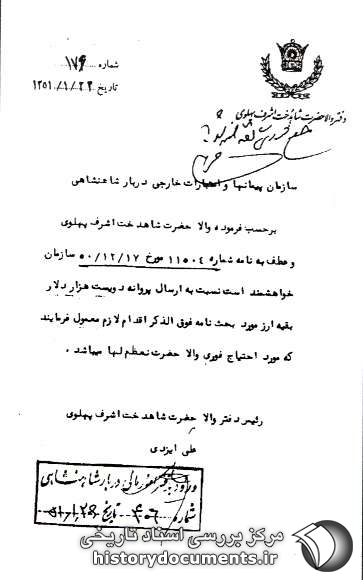 شماره ۱۷۶
تاریخ ۱۳۵۱/۱/۲۲
دفتر والاحضرت شاهدخت اشرف پهلوی
سازمان پیمانها و اعتبارات خارجی دربار شاهنشاهی
برحسب فرموده والا حضرت شاهدخت اشرف پهلوی
و عطف به نامه شماره ۱۱۵۰۴ مورخ ۵۰/۱۲/۱۷ سازمان
خواهشمند است نسبت به ارسال پروانه دویست هزار دلار
بقیه ارز مورد بحث نامه فوق الذکر اقدام لازم معمول فرمایند
که مورد احتیاج فوری والا حضرت معظم لها میباشد .
رئیس دفتر والا حضرت شاهدخت اشرف پهلوی
علی ایزدی
دربار شاهنشاهی
شماره ۴۰۶ تاریخ
مرکز بررسی اسناد تاریخی
historydocuments.ir